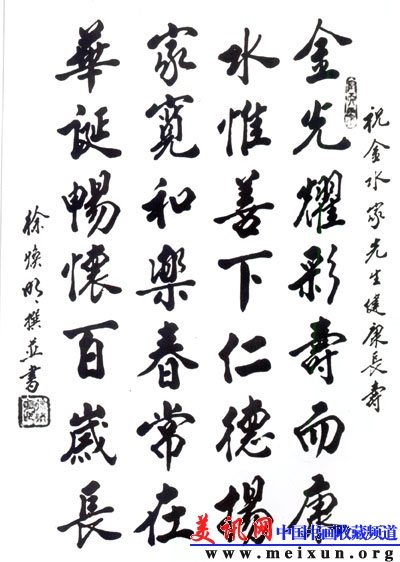 祝金水家先生健康長壽
金光耀彩壽而康
水惟善下仁德揚
家寬和樂春常在
華誕暢懷百歲長
徐煥明撰並書
美讯网 中国书画收藏频道
www.meixun.org